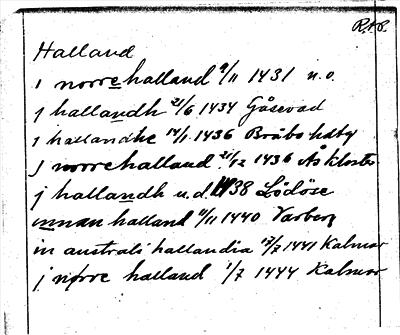 R.A.P.
Halland
i norrehalland 9/11 1431 n.o.
j hallandh 21/6 1434 Gåsevad
j hallandhe 14/1 1436 Bråbo hdbg
j norrehalland 21/12 1436 Ås kloster
j hallandh u.d. 1438 Lödöse
innan halland 11/11 1440 Varberg
in australi hallandia 13/7 1441 Kalmar
j nørre halland 1/7 1444 Kalmar